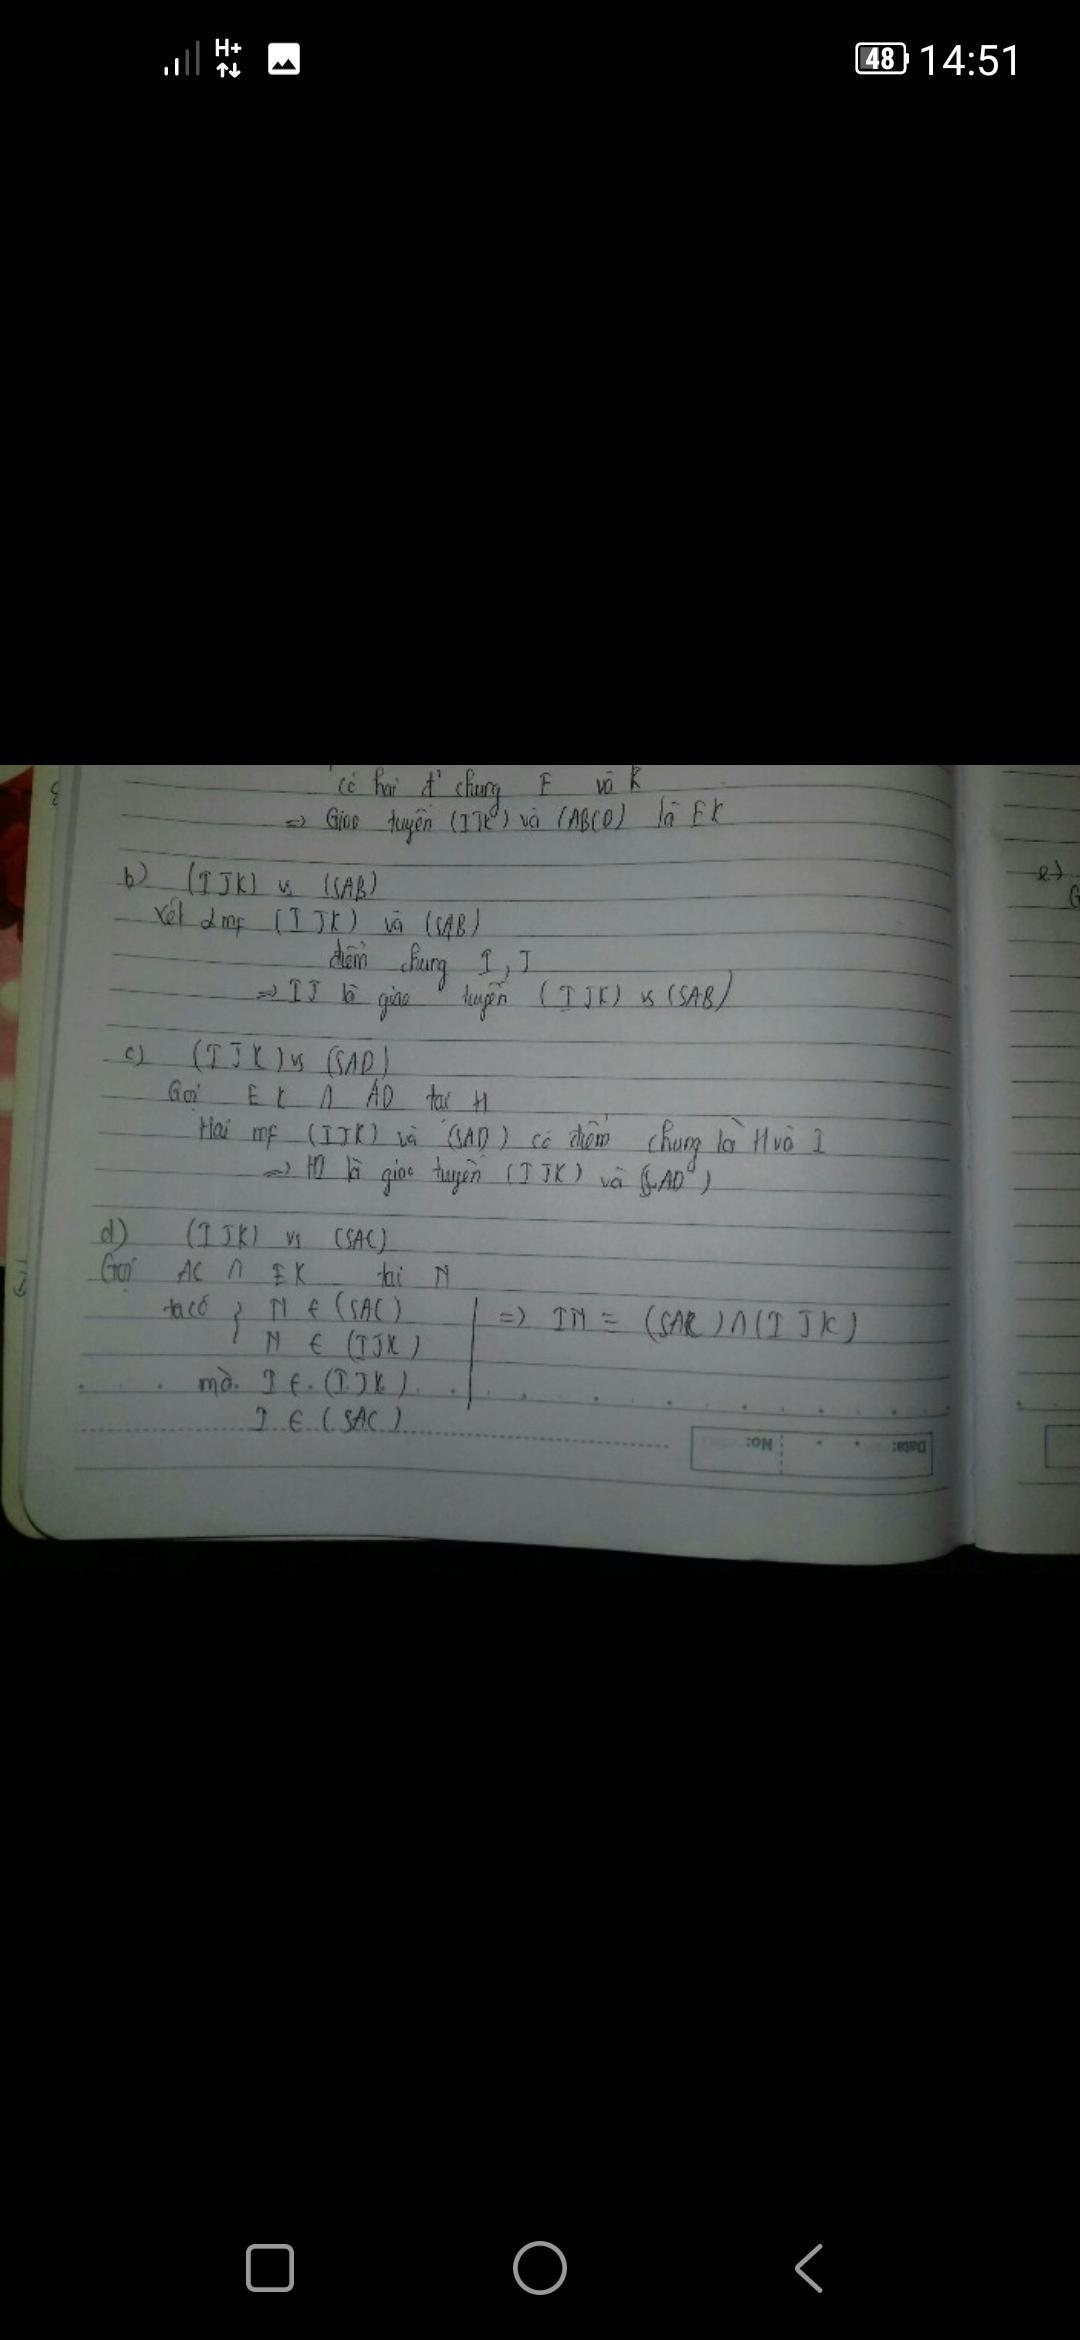 H+
48 14:51
có hai đ' chung E và K
=> Giao tuyến (IJK) và (ABCD) là EK
b) (IJK) vs (SAB)
Xét 2mf (IJK) và (SAB)
điểm chung I, J
=> IJ là giao tuyến (IJK) vs (SAB)
e)
c) (IJK) vs (SAD)
Gọi EK ∩ AD tại H
Hai mf (IJK) và (SAD) có điểm chung là H và I
=> HI là giao tuyến (IJK) và (SAD)
d) (IJK) vs (SAC)
Gọi AC ∩ EK tại N
ta có } N ∈ (SAC)
N ∈ (IJK)
=> IN = (SAC) ∩ (IJK)
mà I ∈ (IJK)
I ∈ (SAC)
No: Date: